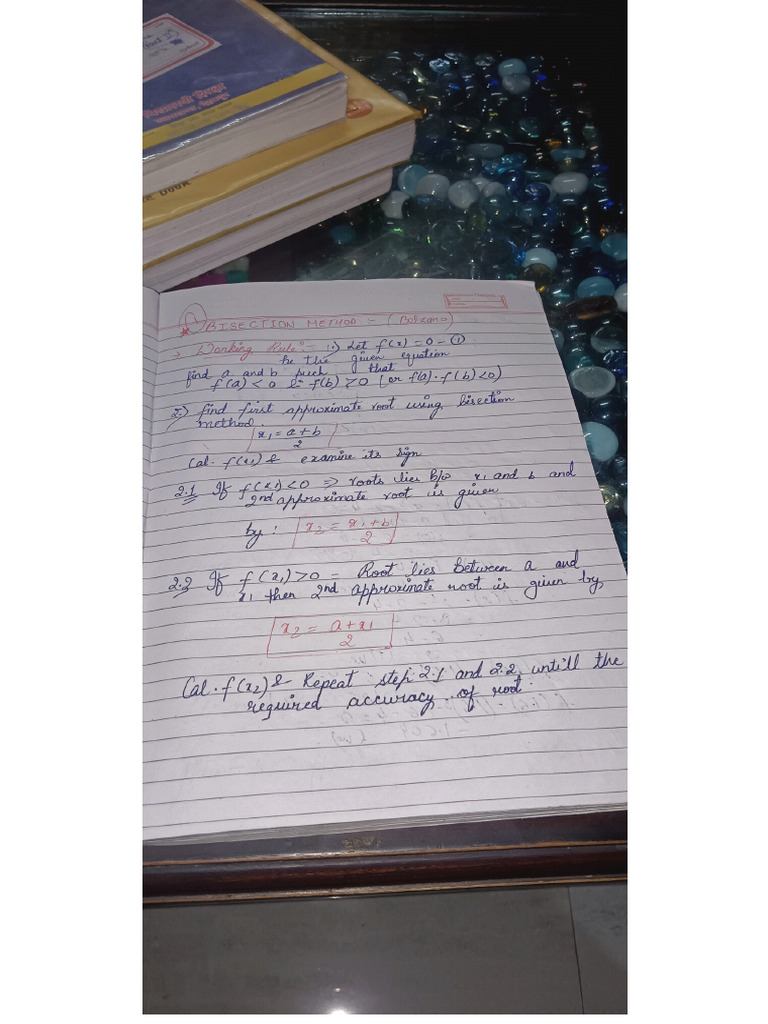 BOOK
BISECTION METHOD :- (Bolzano)
→ Working Rule :- 1.) Let f(x) = 0 - (1)
be the given equation
find a and b such that
f(a) < 0 & f(b) > 0 [or f(a).f(b) < 0)
2.) find first approximate root using bisection
method.
x₁ = a+b
2
Cal. f(x₁) & examine its sign
2.1 If f(x₁) < 0 ⇒ roots lies b/w x₁ and b and
2nd approximate root is given
by : x₂ = x₁+b
2
2.2 If f(x₁) > 0 - Root lies between a and
x₁ then 2nd approximate root is given by
x₂ = a+x₁
2
Cal. f(x₂) & Repeat step 2.1 and 2.2 untill the
required accuracy of root.